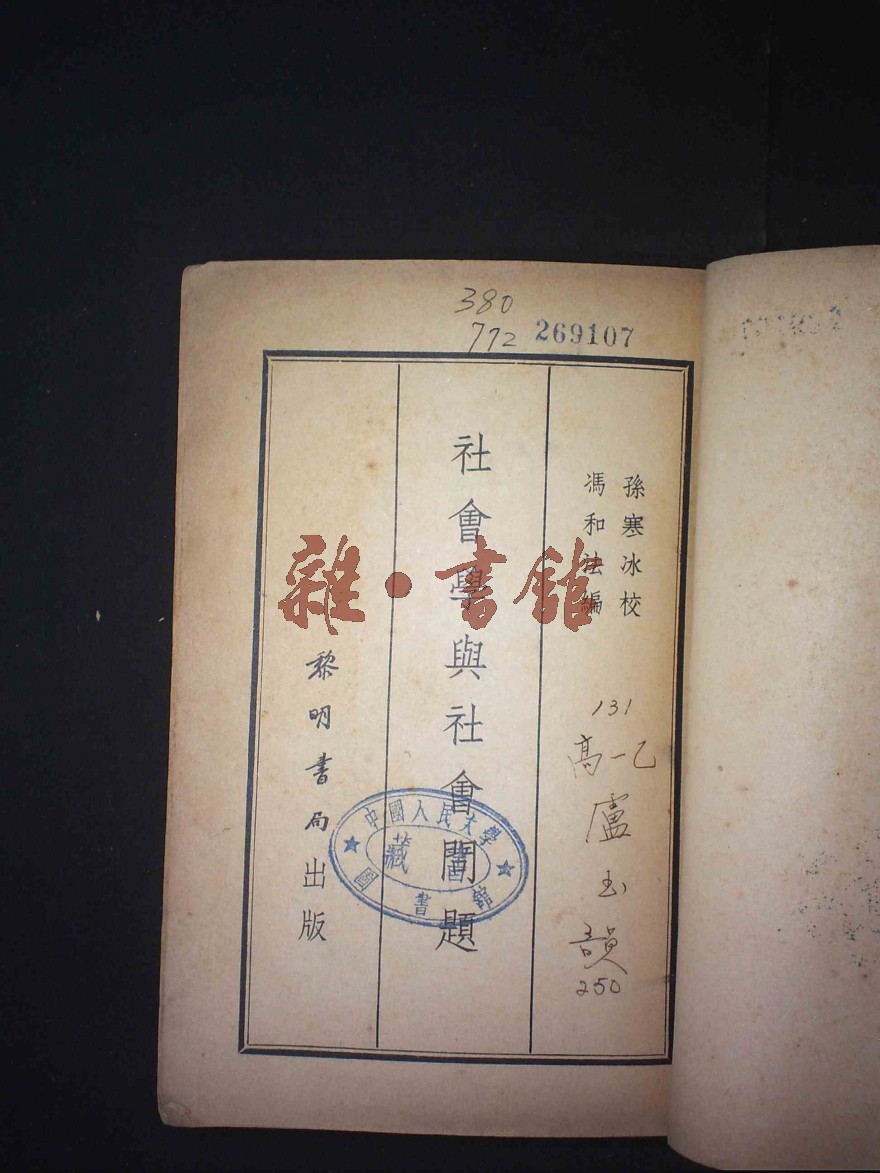 380
772 269107
孫寒冰校
馮和法編
131
高一乙
盧玉韻
250
社會學與社會問題
中國人民大學
圖書館
藏書
黎明書局出版
雜·書館